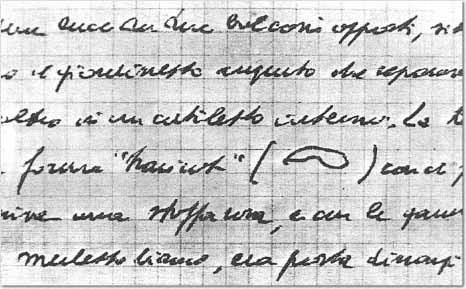 due balconi opposti, si
o il giardinetto angusto che separava
in un cortiletto interno. La t
forma "haricot" ( ) con c
una stoffa rosa, e con le gam
merletto bianco, era posta dinanzi